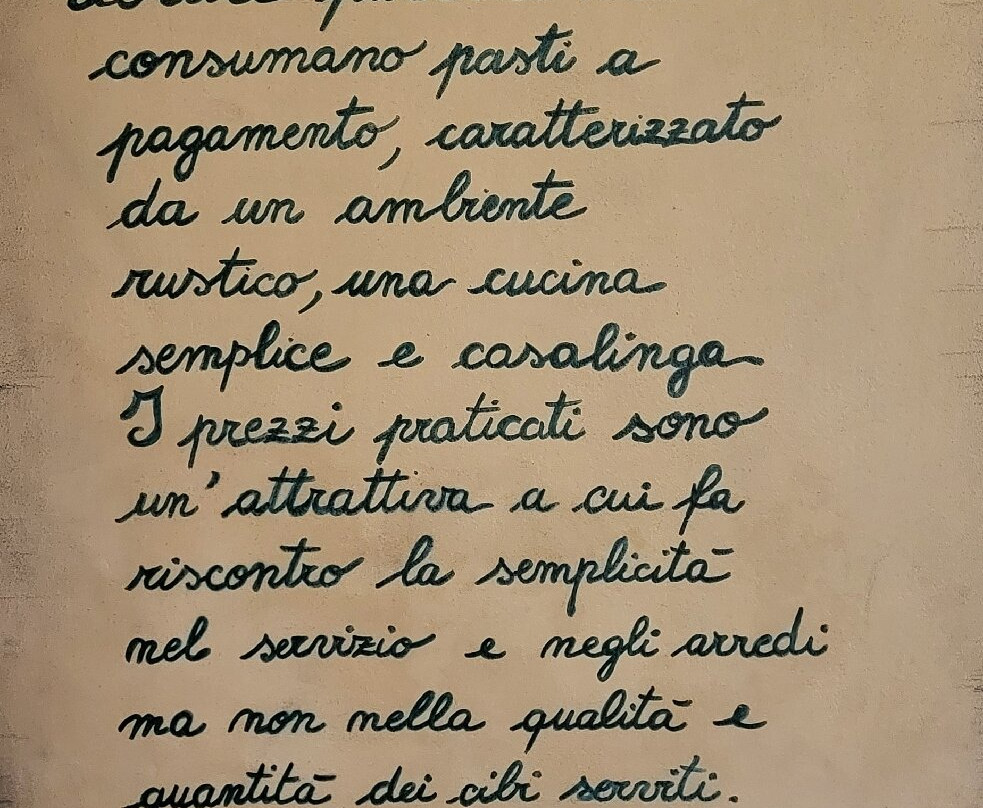 consumano pasti a
pagamento, caratterizzato
da un ambiente
rustico, una cucina
semplice e casalinga
I prezzi praticati sono
un'attrattiva a cui fa
riscontro la semplicità
nel servizio e negli arredi
ma non nella qualità e
quantità dei cibi serviti.